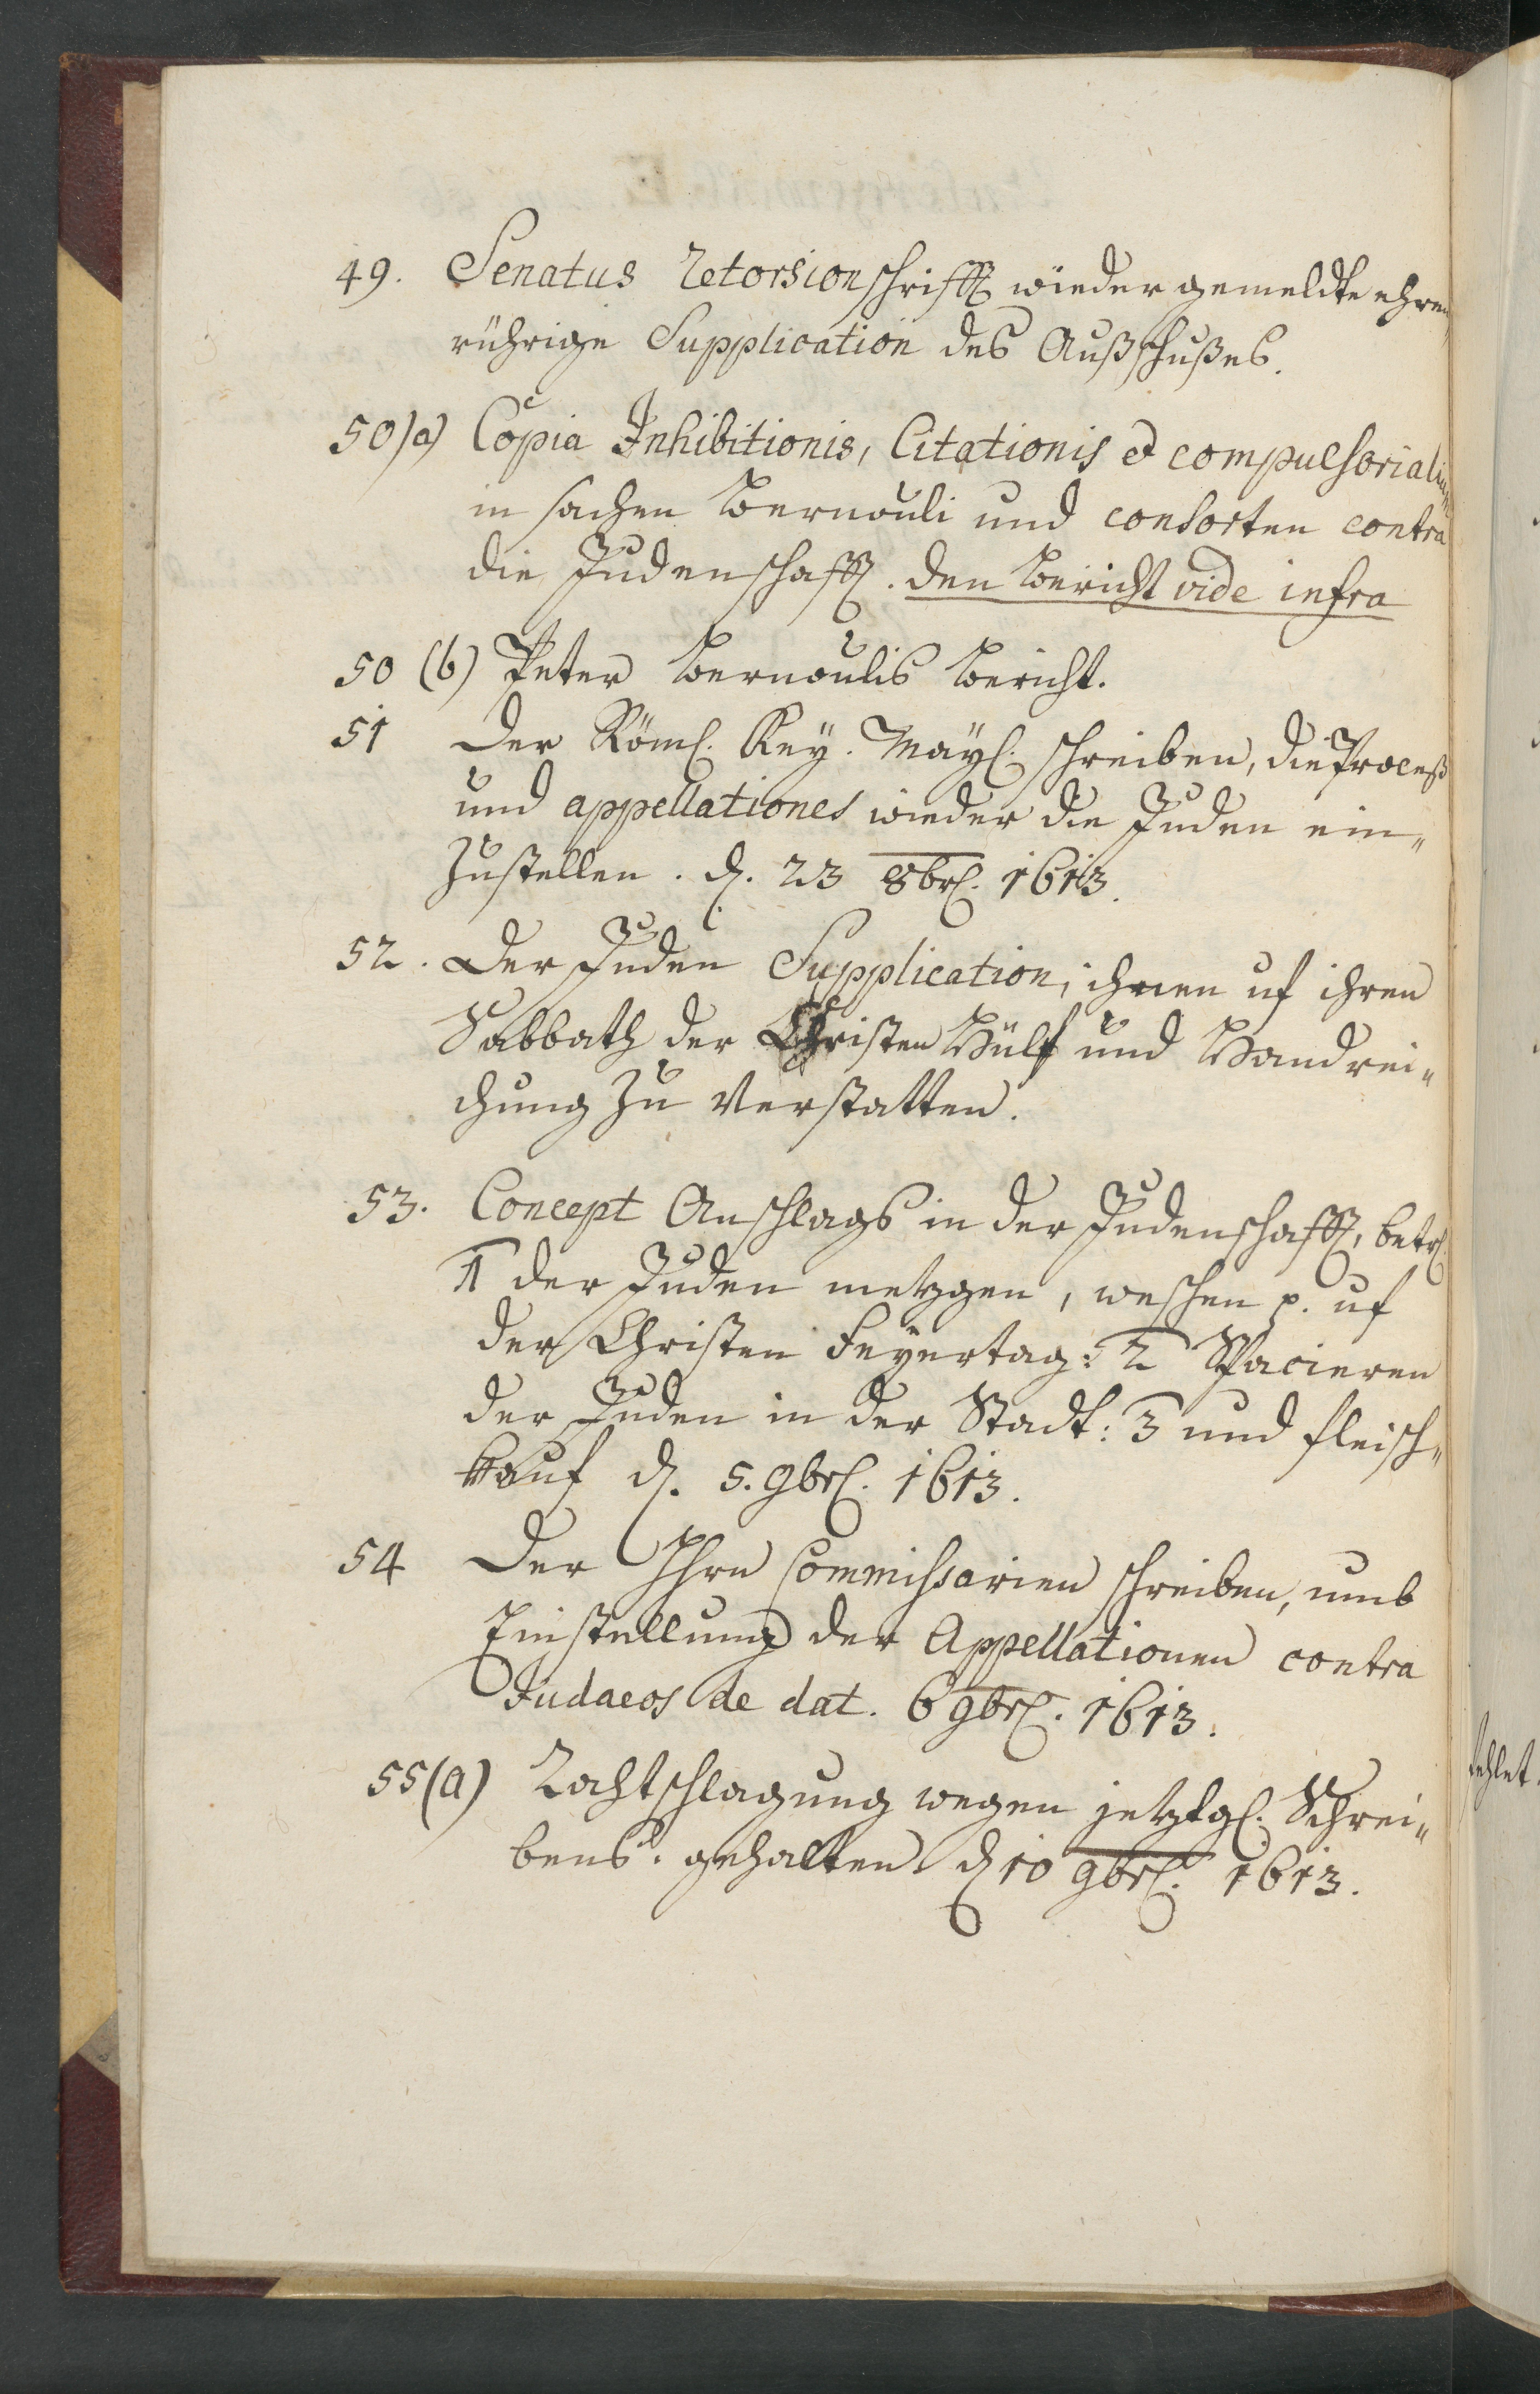 49. Senatus Retorsionschrifft wieder gemeldte ehren„
rührige Supplication des Außschußes.
50)a) Copia Inhibitionis, Citationis et compulsorialiu„
in sachen Bernouli und consorten contra
die Judenschafft. den Bericht vide infra
50 (b) Peter Bernoulis Bericht.
51 Der Röml. Key. Mayl. schreiben, die Proceß
und appellationes wieder die Juden ein„
zustellen. d. 23 8brl. 1613.
52. Der Juden Supplication, ihnen uf ihren
Sabbath der Christen Hülf und Handrei„
chung zu verstatten.
53. Concept Anschlags in der Judenschafft, betrl.
1 der Juden metzgen, weschen p. uf
der Christen Feyertag: 2 Spacieren
der Juden in der Stadt: 3 und fleisch„
kauf d. 5. 9brl. 1613.
54 Der Hhrn Commissarien schreiben, umb
Einstellung der Appellationen contra
Judaeos de dat. 6 9brl. 1613.
55(a) Rahtschlagung wegen jetztgl. Schrei„
bens. gehalten d 10 9brl. 1613.
fehlet.